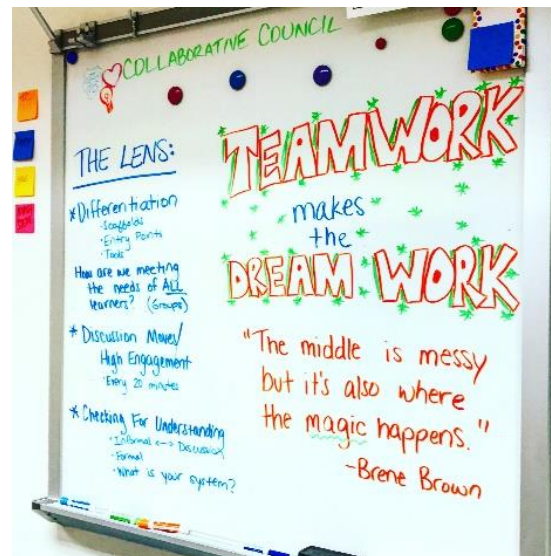 COLLABORATIVE COUNCIL
THE LENS:
* Differentiation
· Scaffolds
· Entry Points
· Tools
How are we meeting
the needs of ALL
learners? (Groups)
* Discussion Moves/
High Engagement
· Every 20 minutes
* Checking For Understanding
· Informal <--> Discussion
· Formal
· What is your system?
TEAMWORK
makes
the
DREAM WORK
"The middle is messy
but it's also where
the magic happens."
-Brene Brown